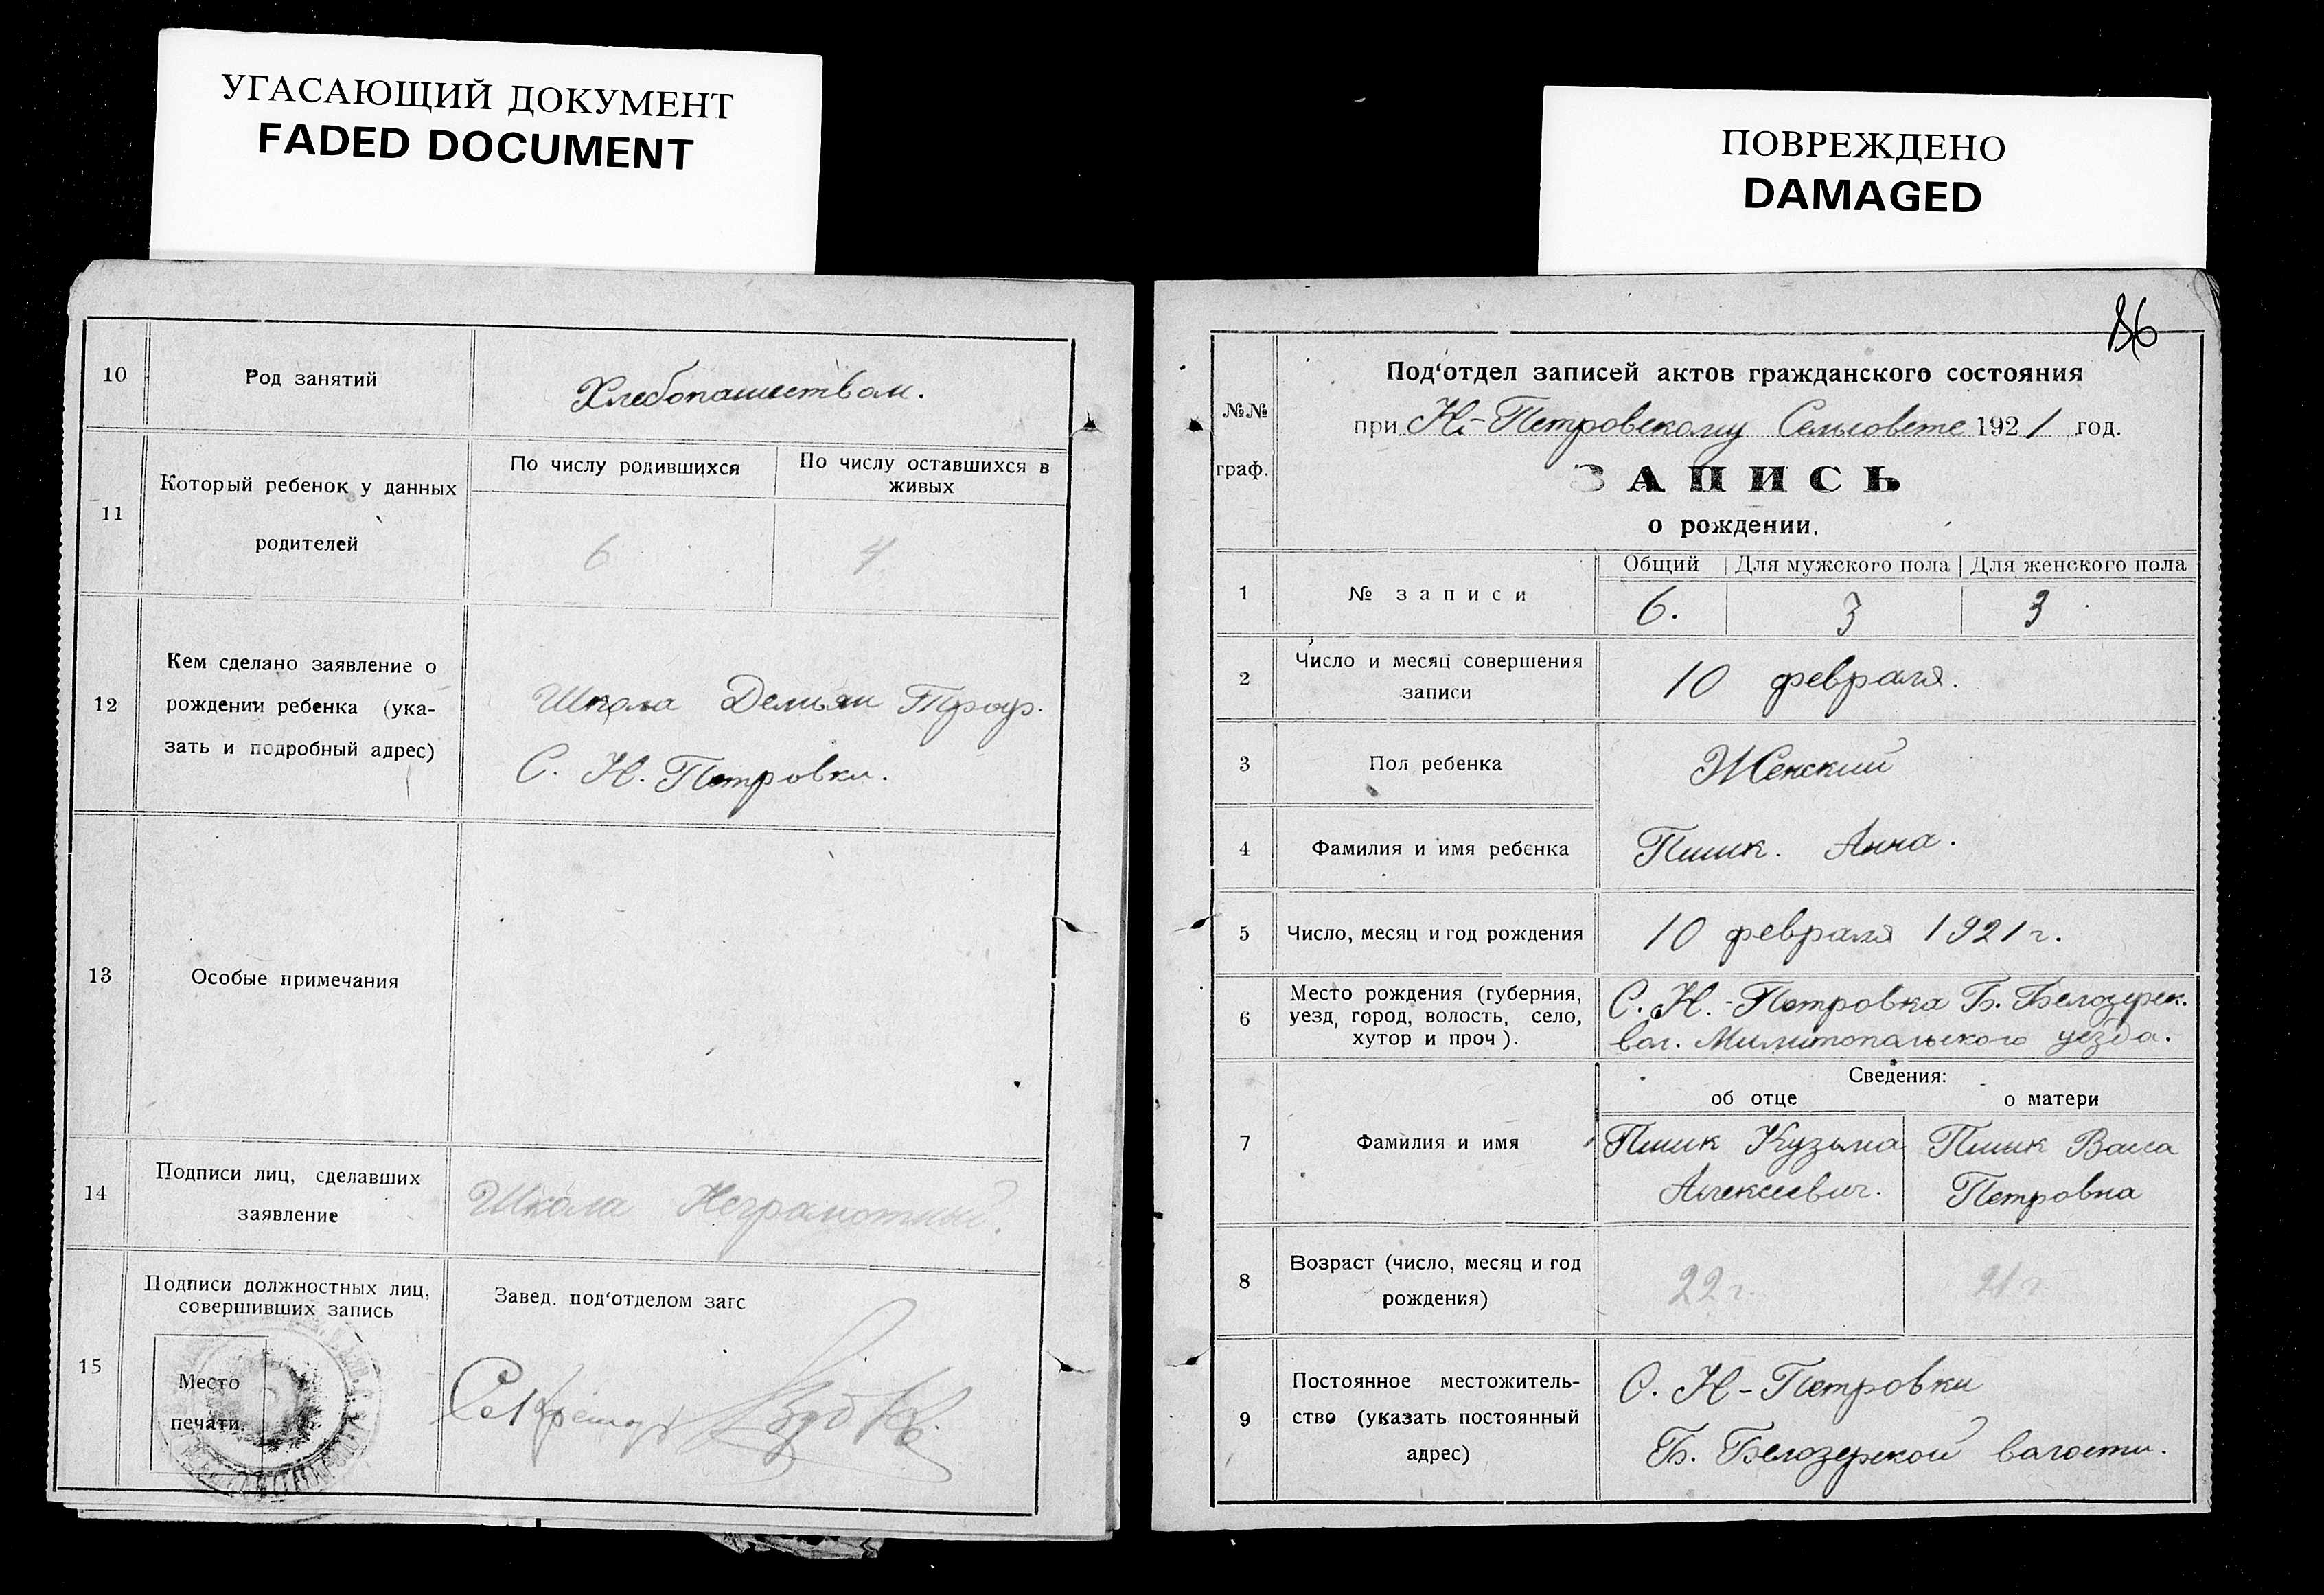 УГАСАЮЩИЙ ДОКУМЕНТ
FADED DOCUMENT
10
Род занятий
Хлебопашеством.
11
Который ребенок у данных
родителей
По числу родившихся
По числу оставшихся в
живых
6
4
12
Кем сделано заявление о
рождении ребенка (ука-
зать и подробный адрес)
Школа Демьян
С. Н. Петровки.
13
Особые примечания
14
Подписи лиц, сделавших
заявление
Школа Неграмотный.
15
Подписи должностных лиц,
совершивших запись
Место
печати
Завед. под‘отделом загс
Секретарь
ПОВРЕЖДЕНО
DAMAGED
№№
граф.
Под‘отдел записей актов гражданского состояния
при Н.-Петровскому Сельсовете 1921 год.
ЗАПИСЬ
о рождении.
1
№ записи
Общий
Для мужского пола
Для женского пола
6.
3
3
2
Число и месяц совершения
записи
10 февраля.
3
Пол ребенка
Женский
4
Фамилия и имя ребенка
Пшик. Анна.
5
Число, месяц и год рождения
10 февраля 1921 г.
6
Место рождения (губерния,
уезд, город, волость, село,
хутор и проч).
С. Н.-Петровка Б. Белозерск.
вол. Милитопольского уезда.
Сведения:
об отце
о матери
7
Фамилия и имя
Пшик Кузьма
Алексеевич.
Пшик Васса
Петровна
8
Возраст (число, месяц и год
рождения)
22 г.
21 г
9
Постоянное местожитель-
ство (указать постоянный
адрес)
С. Н-Петровки
Б. Белозерской волости.